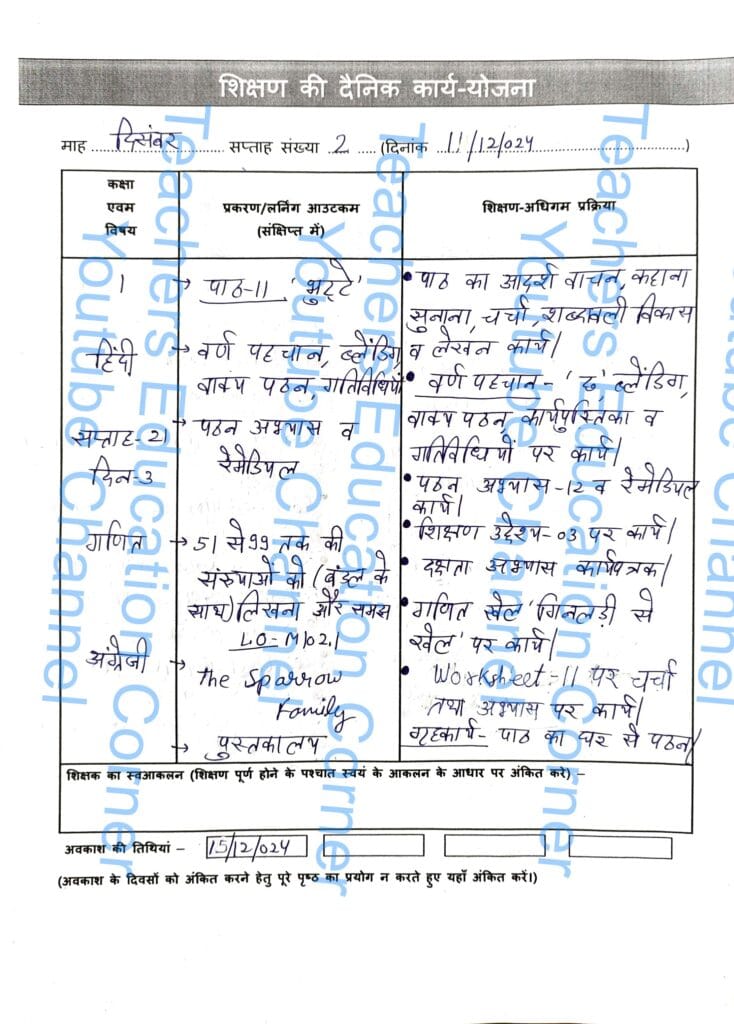 शिक्षण की दैनिक कार्य-योजना
माह दिसंबर सप्ताह संख्या 2 (दिनांक 11/12/024)
कक्षा
एवम
विषय
प्रकरण/लर्निग आउटकम
(संक्षिप्त में)
शिक्षण-अधिगम प्रक्रिया
1
हिंदी
सप्ताह-21
दिन-3
→ पाठ-11 'भुट्टे'
→ वर्ण पहचान, ब्लेंडिंग,
वाक्य पठन, गतिविधियों
→ पठन अभ्यास व
रेमेडियल
• पाठ का आदर्श वाचन, कहाना
सुनाना, चर्चा, शब्दावली विकास
व लेखन कार्य।
• वर्ण पहचान- 'ढ' ब्लेंडिंग,
वाक्य पठन कार्यपुस्तिका व
गतिविधियों पर कार्य।
• पठन अभ्यास-12 व रेमेडियल
कार्य।
गणित
→ 51 से 99 तक की
संख्याओं को (बंडल के
साथ) लिखना और समझ
LO-M102.1
• शिक्षण उद्देश्य-03 पर कार्य।
• दक्षता अभ्यास कार्यपत्रक।
• गणित खेल 'गिनलड़ी से
खेल' पर कार्य।
अंग्रेजी
→ the Sparrow
Family
→ पुस्तकालय
• Worksheet-11 पर चर्चा
तथा अभ्यास पर कार्य।
गृहकार्य- पाठ का घर से पठन।
शिक्षक का स्वआकलन (शिक्षण पूर्ण होने के पश्चात स्वयं के आकलन के आधार पर अंकित करे) –
अवकाश की तिथियां – 15/12/024
(अवकाश के दिवसों को अंकित करने हेतु पूरे पृष्ठ का प्रयोग न करते हुए यहाँ अंकित करें।)
Teachers Education Corner
Youtube Channel
Teachers Education Corner
Youtube Channel
Teachers Education Corner
Youtube Channel